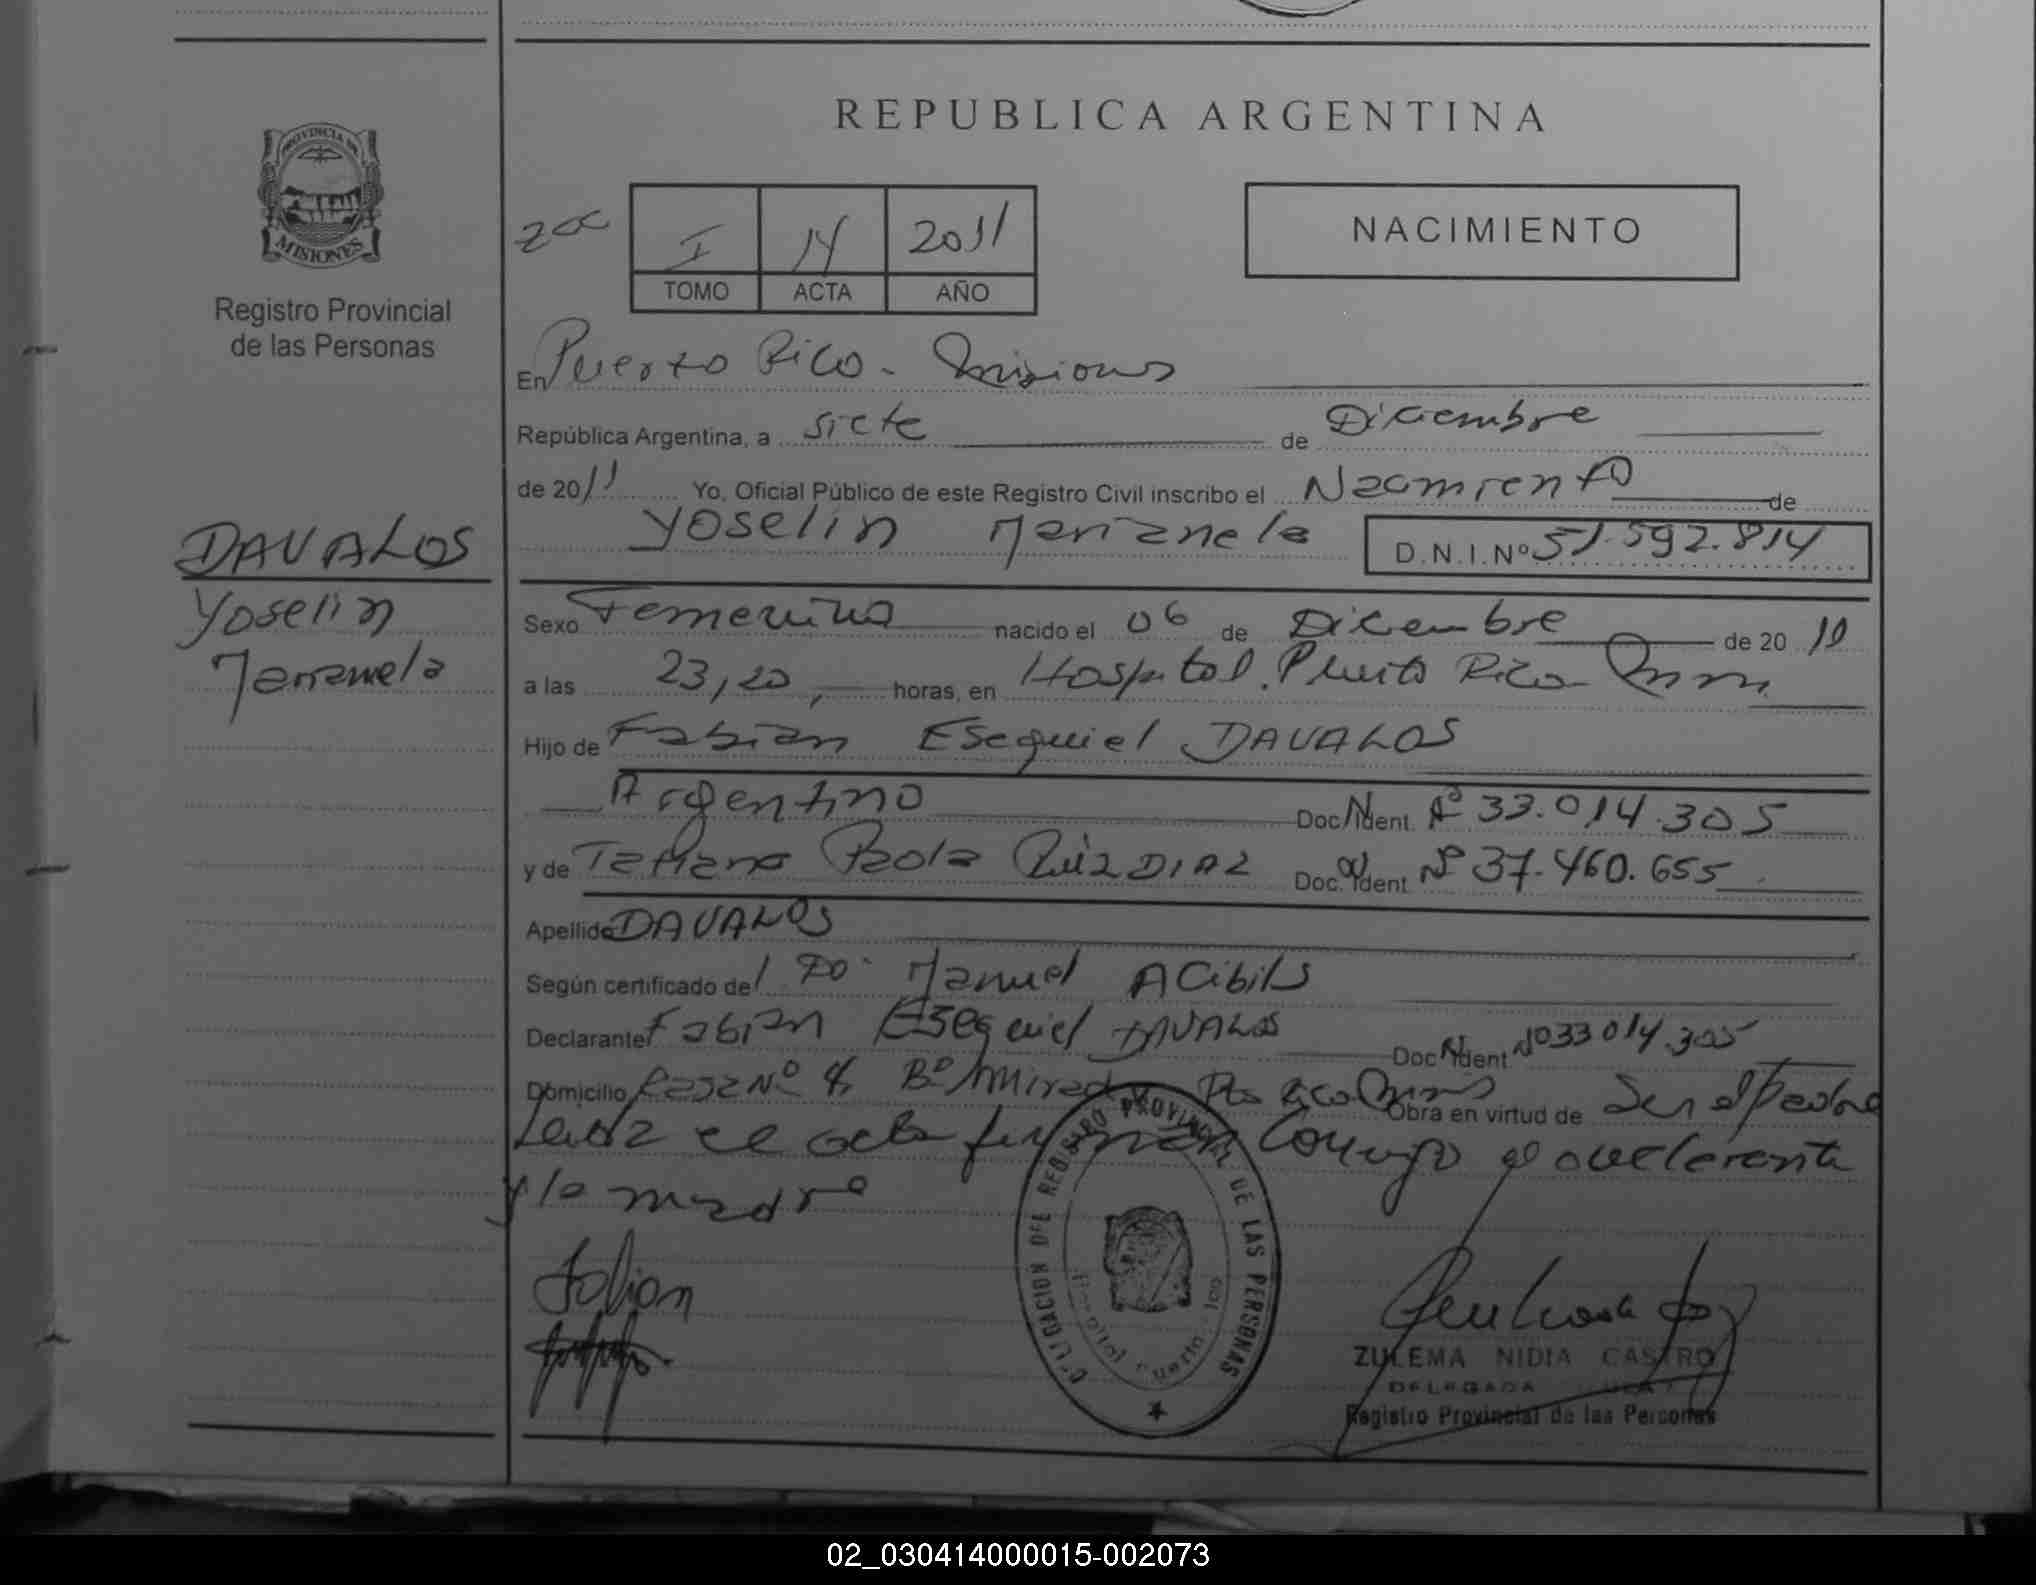 REPUBLICA ARGENTINA
PROVINCIA DE
MISIONES
Registro Provincial
de las Personas
I 14 2011
TOMO ACTA AÑO
NACIMIENTO
En Puerto Rico - Misiones
República Argentina, a siete de Diciembre
de 2011 Yo, Oficial Público de este Registro Civil inscribo el Nacimiento de
Yoselin Marianela D.N.I.Nº 51.592.814
DAVALOS
Yoselin
Marianela
Sexo Femenino nacido el 06 de Diciembre de 20
a las 23,20, horas, en Hospital. Puerto Rico
Hijo de Fabian Esequiel DAVALOS
Argentino Doc. Ident. Nº 33.014.305
y de Tatiana Paola Ruiz DIAZ Doc. Ident Nº 37.460.655
Apellido DAVALOS
Según certificado del Manuel ACibils
Declarante Fabian Esequiel DAVALOS Doc. Ident Nº 33.014.305
Domicilio Casa Nº Bº Pto Rico Obra en virtud de Ser el Padre
Leida el acta firman Conmigo el declarante
y la madre
Fabian
DELEGACION DEL REGISTRO PROVINCIAL DE LAS PERSONAS
ZULEMA NIDIA CASTRO
DELEGADA
Registro Provincial de las Personas
02_030414000015-002073